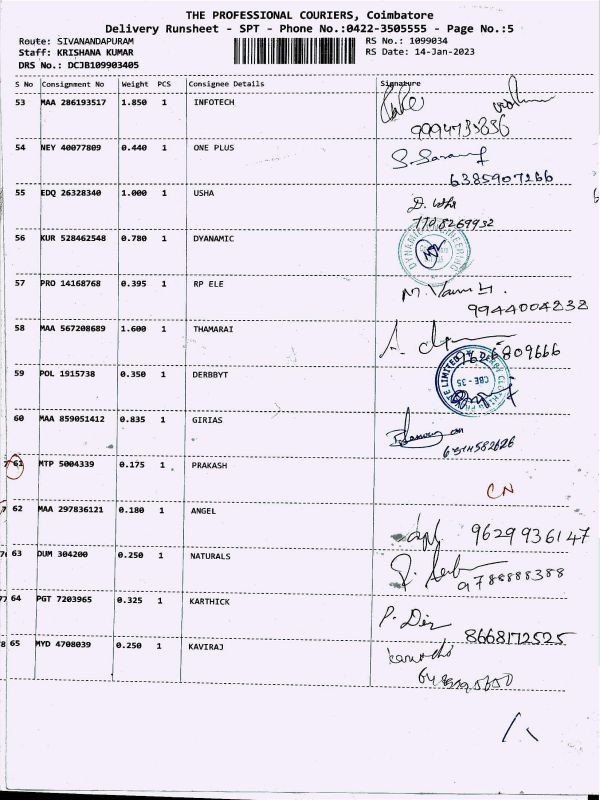 THE PROFESSIONAL COURIERS, Coimbatore
Delivery Runsheet - SPT - Phone No.:0422-3505555 - Page No.:5
Route: SIVANANDAPURAM RS No.: 1099034
Staff: KRISHANA KUMAR RS Date: 14-Jan-2023
DRS No.: DCJB109903405
S No Consignment No Weight PCS Consignee Details Signature
53 MAA 286193517 1.850 1 INFOTECH
54 NEY 40077809 0.440 1 ONE PLUS
6385907266
55 EDQ 26328340 1.000 1 USHA
D. Usha
56 KUR 528462548 0.780 1 DYANAMIC
DYNAMIC ENGINEERING
57 PRO 14168768 0.395 1 RP ELE
9944004232
58 MAA 567208689 1.600 1 THAMARAI
59 POL 1915738 0.350 1 DERBBYT
CBE - 35
60 MAA 859051412 0.835 1 GIRIAS
61 MTP 5004339 0.175 1 PRAKASH
CN
62 MAA 297836121 0.180 1 ANGEL
9629936147
63 DUM 304200 0.250 1 NATURALS
9788888388
64 PGT 7203965 0.325 1 KARTHICK
8668172525
65 MYD 4708039 0.250 1 KAVIRAJ